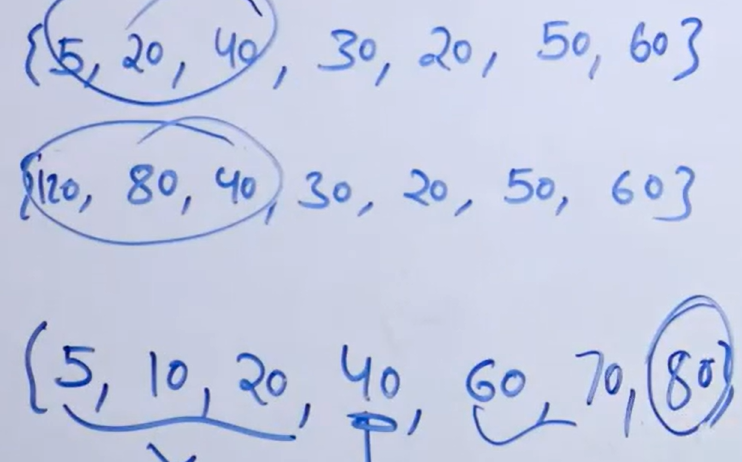 {5, 20, 40, 30, 20, 50, 60}
{120, 80, 40, 30, 20, 50, 60}
{5, 10, 20, 40, 60, 70, 80}